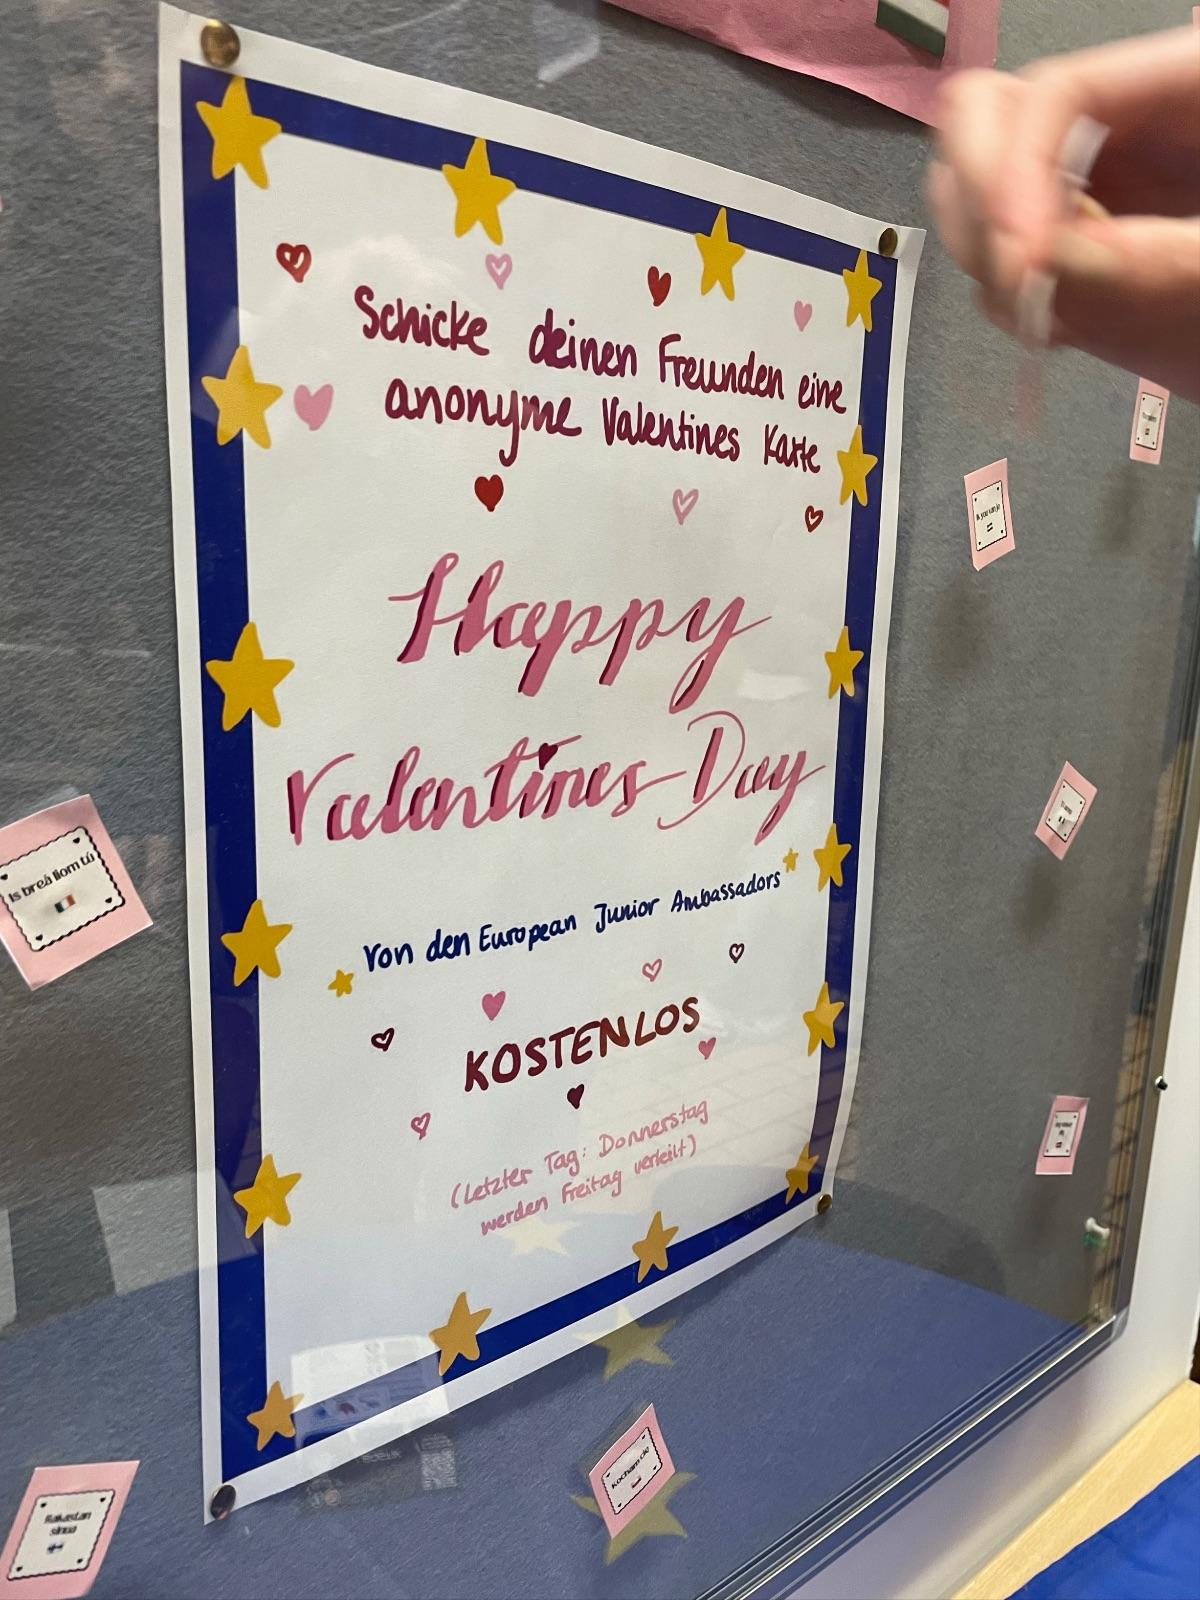 Schicke deinen Freunden eine
anonyme Valentines Karte
Happy
Valentines Day
Von den European Junior Ambassadors
KOSTENLOS
(Letzter Tag: Donnerstag
werden Freitag verteilt)
Is breá liom tú
Rakastan
sinua
Kocham cię